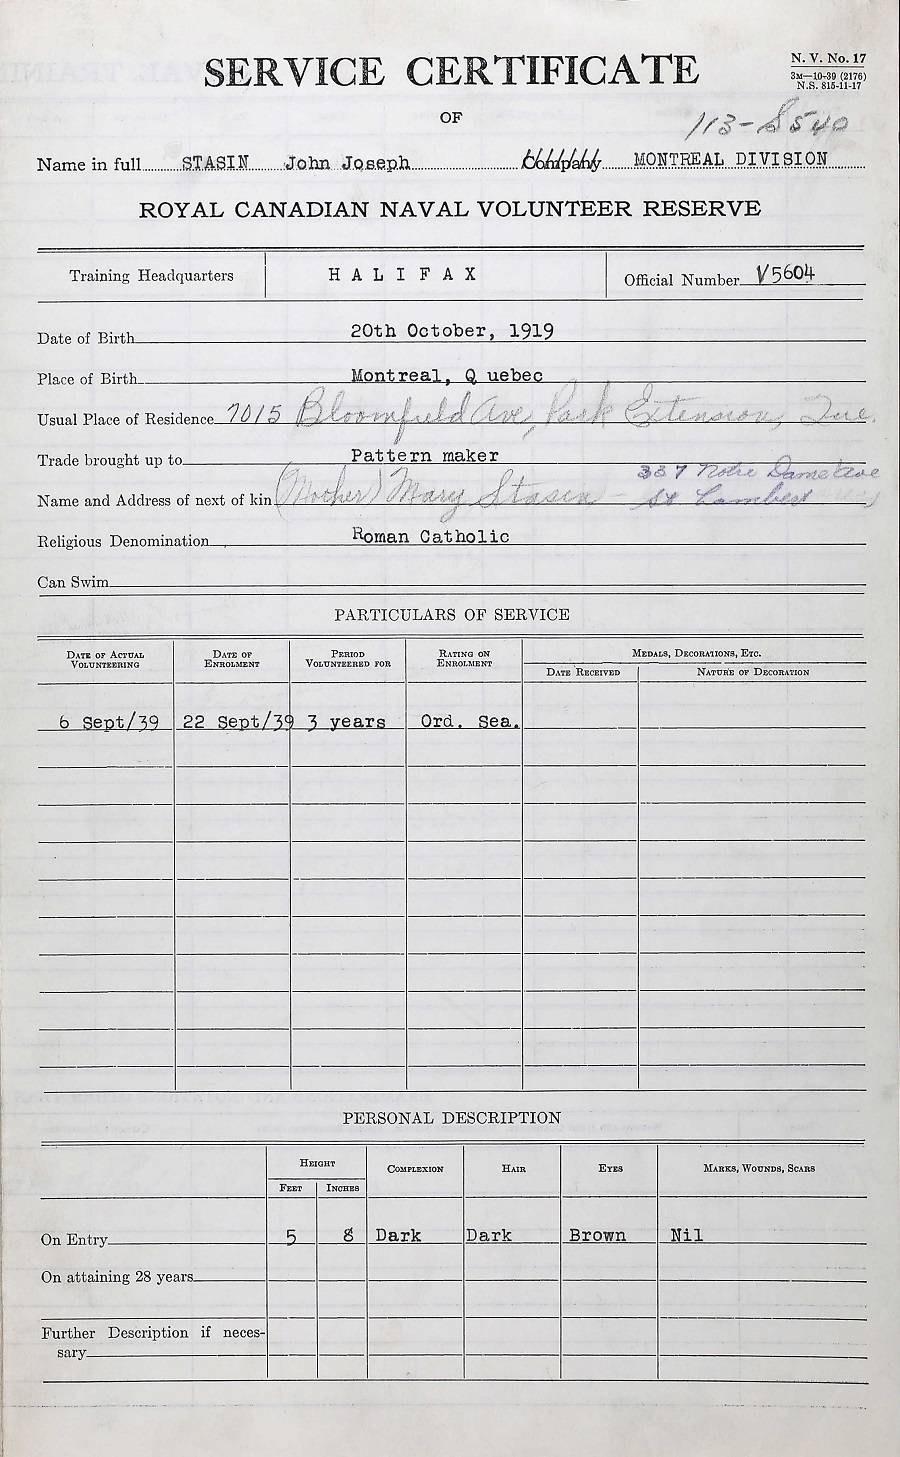 SERVICE CERTIFICATE
N. V. No. 17
3M—10-39 (2176)
N.S. 815-11-17
OF
113-S540
Name in full STASIN John Joseph Company MONTREAL DIVISION
ROYAL CANADIAN NAVAL VOLUNTEER RESERVE
Training Headquarters HALIFAX Official Number V5604
Date of Birth 20th October, 1919
Place of Birth Montreal, Q uebec
Usual Place of Residence 7015 Bloomfield Ave, Park Extension, Que.
Trade brought up to Pattern maker
337 Notre Dame Ave
Name and Address of next of kin (Mother) Mary Stasin - St Lambert
Religious Denomination Roman Catholic
Can Swim
PARTICULARS OF SERVICE
DATE OF ACTUAL VOLUNTEERING DATE OF ENROLMENT PERIOD VOLUNTEERED FOR RATING ON ENROLMENT MEDALS, DECORATIONS, ETC.
DATE RECEIVED NATURE OF DECORATION
6 Sept/39 22 Sept/39 3 years Ord. Sea.
PERSONAL DESCRIPTION
HEIGHT COMPLEXION HAIR EYES MARKS, WOUNDS, SCARS
FEET INCHES
On Entry 5 8 Dark Dark Brown Nil
On attaining 28 years
Further Description if neces-
sary